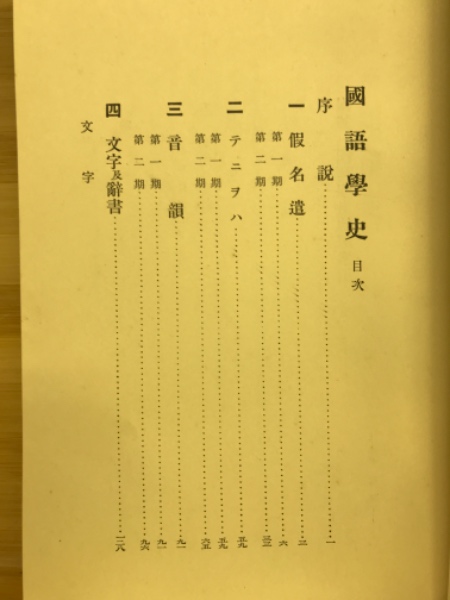 國語學史 目次
序說 一
一 假名遣 三
第一期 六
第二期 三三
二 テニヲハ 五九
第一期 五九
第二期 六五
三 音韻 九一
第一期 九一
第二期 九六
四 文字及辭書 一二八
文字